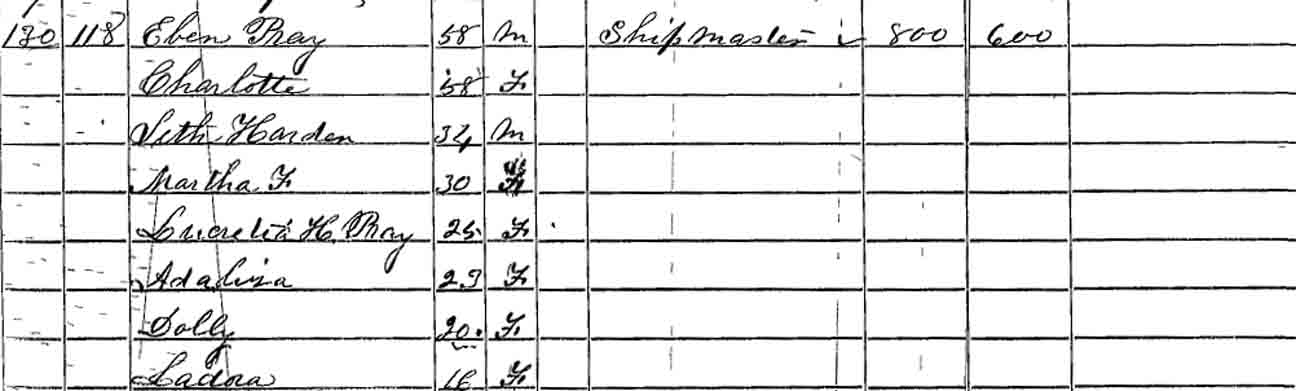 130 118 Eben Ray 58 M Shipmaster 800 600
Charlotte 58 F
Seth Harden 34 M
Martha F 30 F
Lucretia H. Ray 25 F
Adaliza
F
Dolly 20 F
Ladora 16 F